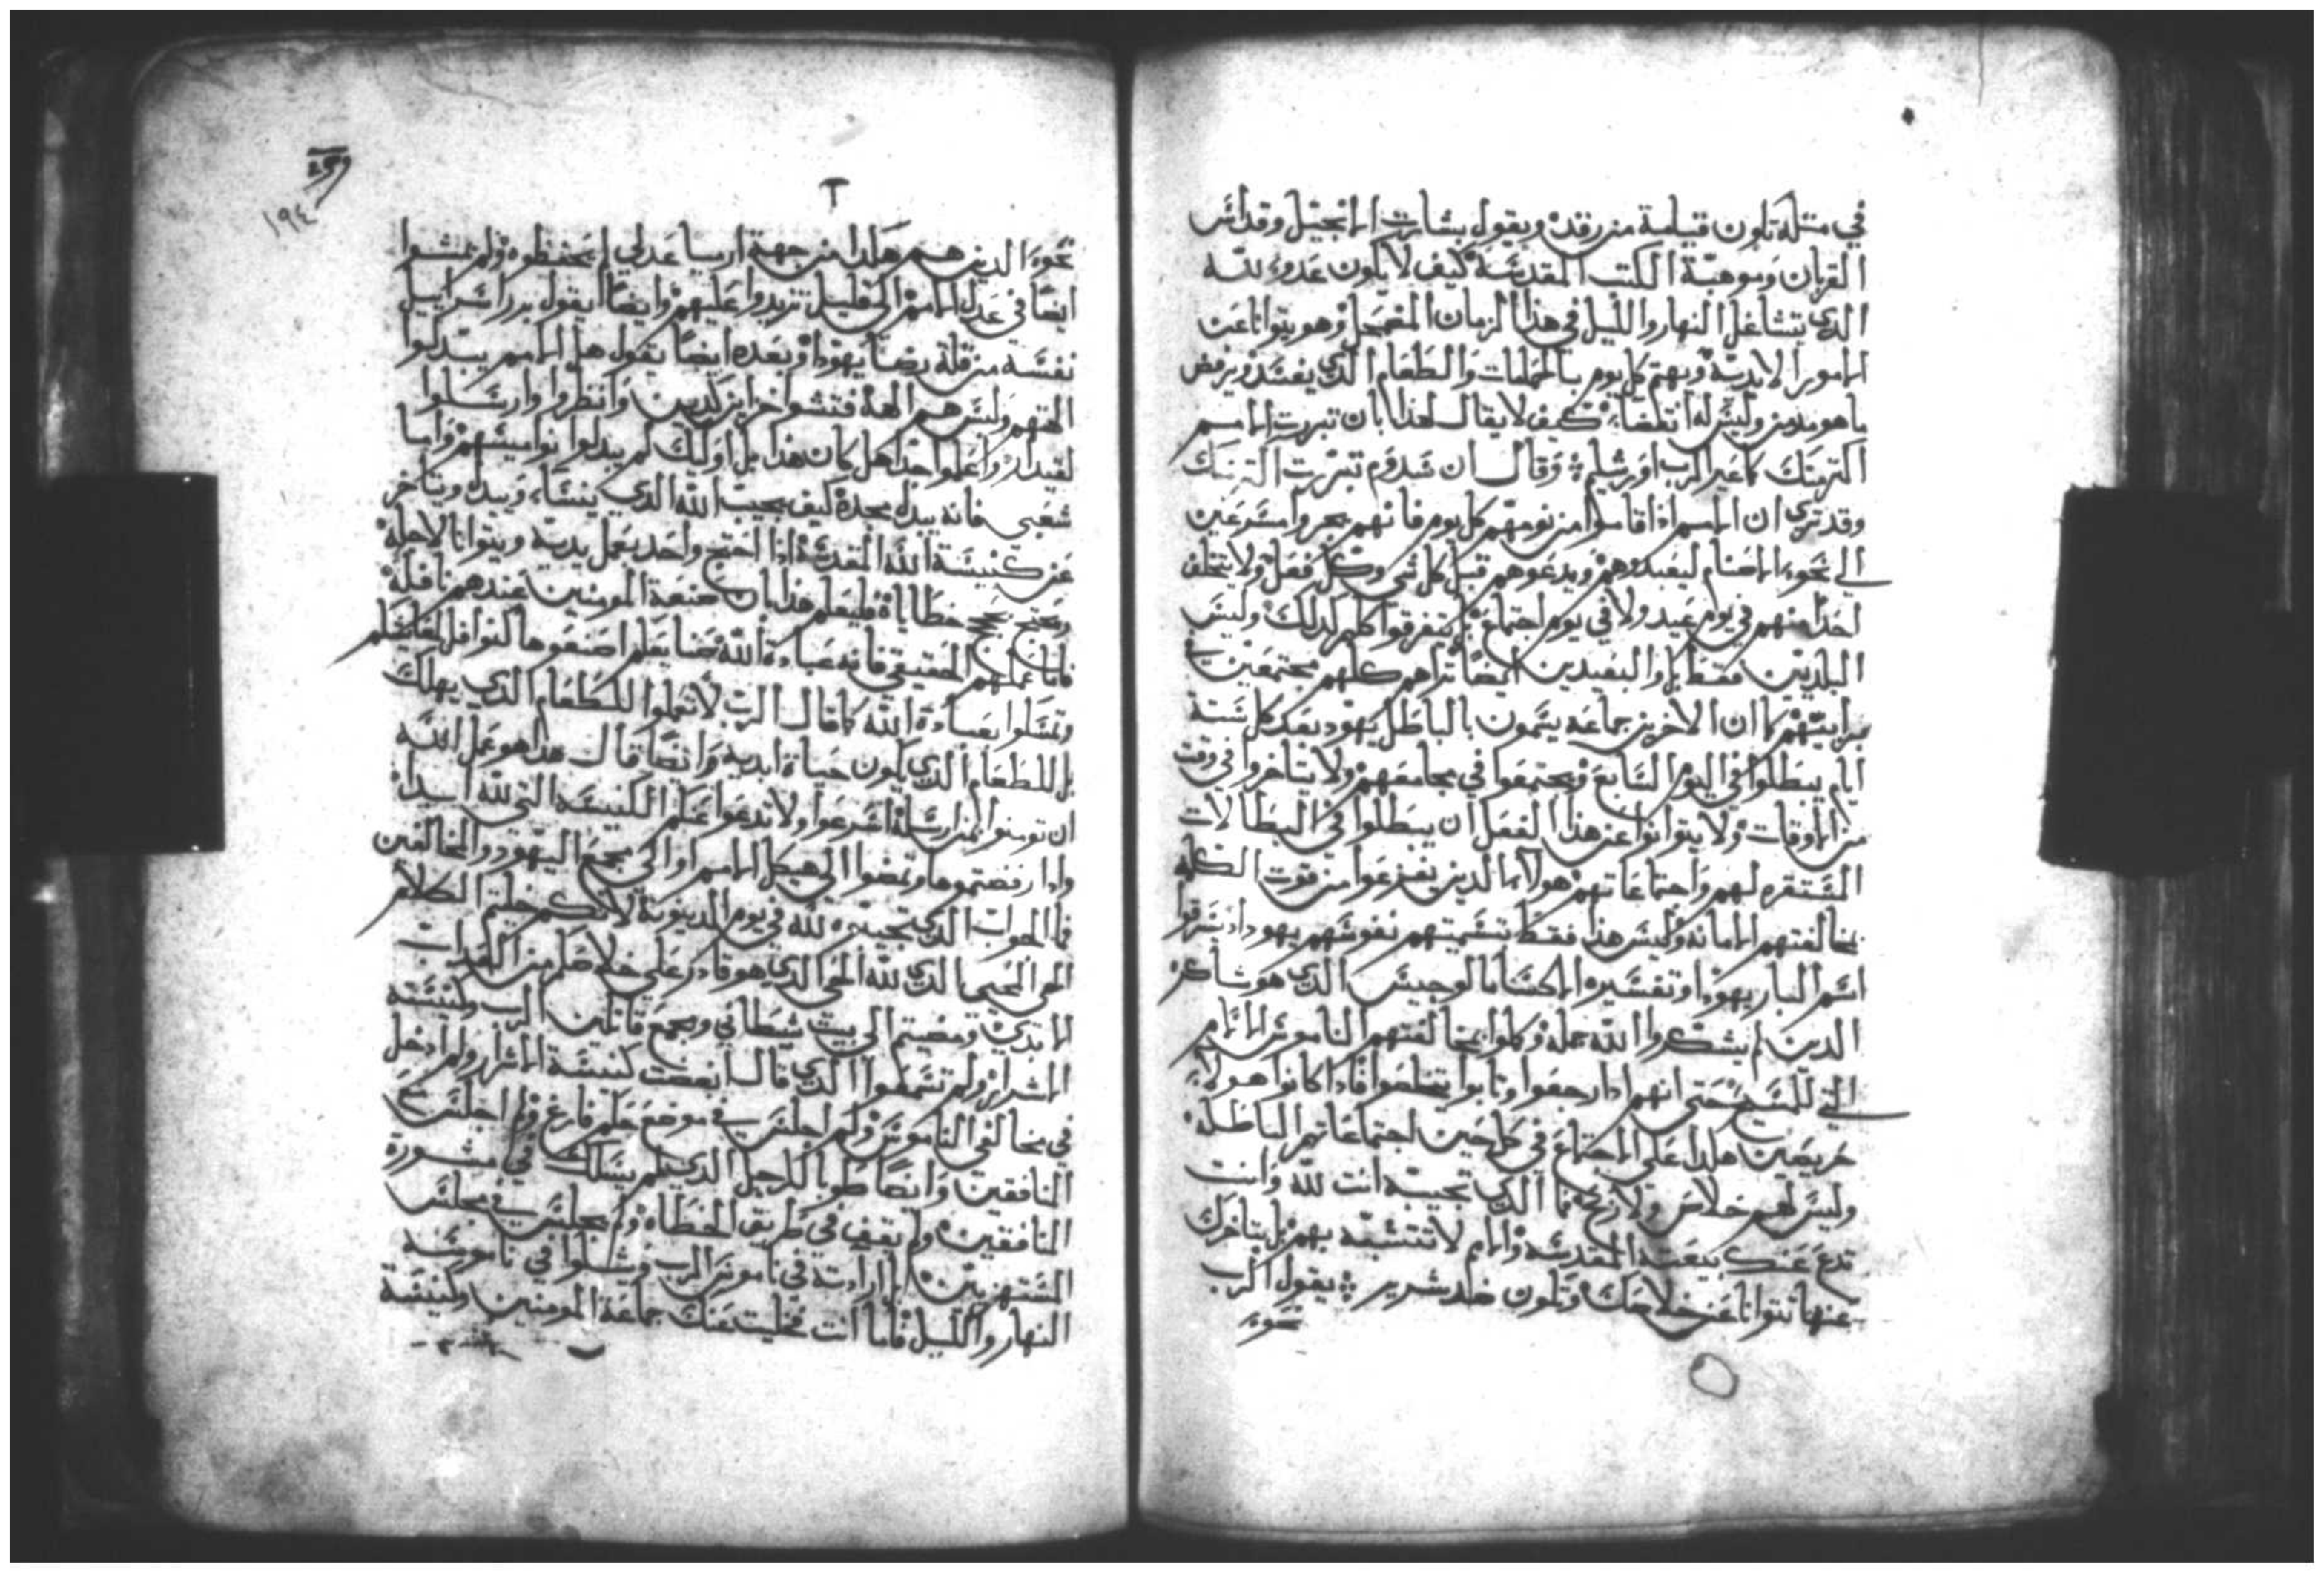 في مثله تكون قيامة من رقدة ويقول بشارت الانجيل وقداس
القربان وموهبة الكتب المقدسة كيف لا يكون عدوء لله
الذي يتشاغل النهار والليل في هذا الزمان المضمحل وهو يتوانا عن
الامور الابدية ويهتم كل يوم بالحمامات والطعام الذي يفسد ويرفض
ما هو مومن وليس له انقضاء كيف لا يقال لهذا بان تبررت الامم
اكتر منك كما عير الرب اورشليم وقال ان سدوم تبررت اكتر منك
وقد تري ان الامم اذا قاموا من نومهم كل يوم فانهم يجروا مسرعين
الي نحوء الاصنام ليعبدوهم ويدعوهم قبل كل شي وكل فعل ولا يتخلف
احدا منهم في يوم عيد ولا في يوم اجتماع بل يتفرقوا كلهم لذلك وليس
البلديين فقط بل والبعيدين ايضا تراهم كلهم مجتمعين في
كما ان الاخرين جماعه يسمون بالباطل يهود بعد كل ستة
ايام يبطلوا في اليوم السابع ويجتمعوا في مجامعهم ولا يتاخروا في وقت
من الاوقات ولا يتوانوا عن هذا الفعل ان يبطلوا في البطالات
المستقره لهم واجتماعاتهم هولاء الذين يفزعوا من قوت الكلمه
بمخالفتهم الامانه وليس هذا فقط بتسميتهم نفوسهم يهود اذ يسرقوا
اسم البار يهودا وتفسيره الذي هو شاكر
الذين لم يشكروا الله عمله وكملوا بمخالفتهم الناموس الالام
التي للمسيح حتي انهم اذا رجعوا وتابوا يتخلصوا فاذا كانوا هولاء
حريصين هكذا علي الاجتماع في كل حين اجتماعاتهم الباطلة
وليس لهم خلاص ولا نجاح فما الذي تجيبه انت لله وانت
تدع عنك بيعته المقدسه والامم لا تتشبه بهم بل بتاخرك
عنها تتوانا عن خلاصك وتكون ضد شرير يقول الرب
نحوء
١٩٤
نحوء الذين هم هكذا من جهة ارميا عدلي لم تحفظوه ولم تمشوا
ايضا في عدل الامم الي قليل تزيدوا عليهم وايضا يقول برر اسراييل
نفسه من قلة يهودا وبعده ايضا يقول هل الامم يبدلوا
الهتهم وليس هم الهة فتشوا جزاير كتيين وانظروا وارسلوا
لقيدار واعلموا جدا هل كان هذا بل اوليك لم يبدلوا نواميسهم واما
شعبي فانه يبدل مجده كيف يجيب الله الذي ينسا ويبدل ويتاخر
عن كنيسة الله المقدسة اذا احتج واحد بعمل يديه ويتوانا لاجله
ويحتج بحجج خطاياه فليعلم هذا بان صنعة المومنين عندهم نافلة
فاما عملهم الحقيقي فانه عبادة الله صنايعكم اصنعوها كنوافل لمعايشكم
وتمسكوا بعبادة الله كما قال الرب لا تعملوا للطعام الذي يهلك
بل للطعام الذي يكون حياة ابدية وايضا قال هذا هو عمل الله
ان تومنوا بمن ارسله اسرعوا ولا تدعوا عنكم الكنيسة التي لله ابدا
واذا رفضتموها وتمضوا الي هيكل الامم او الي مجمع اليهود والمخالفين
فما الجواب الذي تجيبوه لله في يوم الدينونة لانكم خليتم الكلام
الحي المحيي الذي لله الحي الذي هو قادر علي خلاصكم من العذاب
الابدي ومضيتم الي بيت شيطاني ومجمع قاتلين الرب وكنيسة
الاشرار ولم تسمعوا الذي قال ابغضت كنيسة الاشرار ولم ادخل
في مخالفي الناموس ولم اجلس في موضع حكم فارغ ولم اجلس مع
المنافقين وايضا طوبا للرجل الذي لم يسلك في مشورة
المنافقين ولم يقف في طريق الخطاة ولم يجلس في مجلس
المستهزيين لكن ارادته في ناموس الرب ويتلوا في ناموسه
النهار والليل فاما انت فخليت عنك جماعة المومنين وكنيسة